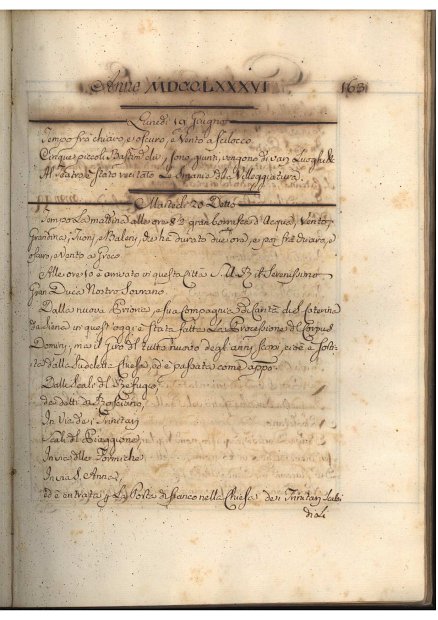 Anno MDCCLXXXVI 163
Lunedì 19 Giugno
Tempo fra chiaro, e oscuro, e Vento a Scilocco
Cinque piccoli Bastim.ti sono giunti, vengono di varj Luoghi &
Al Teatro è stato recitato Le Smanie della Villeggiatura
Martedì 20 Detto
Tempo La mattina alle ore gran borrasca d'Acqua, Vento,
Grandine, Tuoni, e Baleni, che ha durato due ora, e poi fra chiaro, e
oscuro, e Vento a Greco
Alle ore è arrivato in questa Città S.A.R. il Serenissimo
Gran Duca Nostro Sovrano
Dalla nuova Prioria, e sua Compagnia di Carità di S. Caterina
da Siena in quest'oggi è stata fatta La Processione del Corpus
Domini, ma il giro di tutto nuovo degli anni scorsi, ed è
dalla Sudetta Chiesa, ed è passata come appo.
Dalli Scali del Refugio,
da detti del Rosciano,
In Via de i Trinitarj
Scali del Piaggione,
In Via delle Formiche
In Via S. Anna,
ed è entrata p La Porta di fianco nella Chiesa de i Trinitarj
di Li